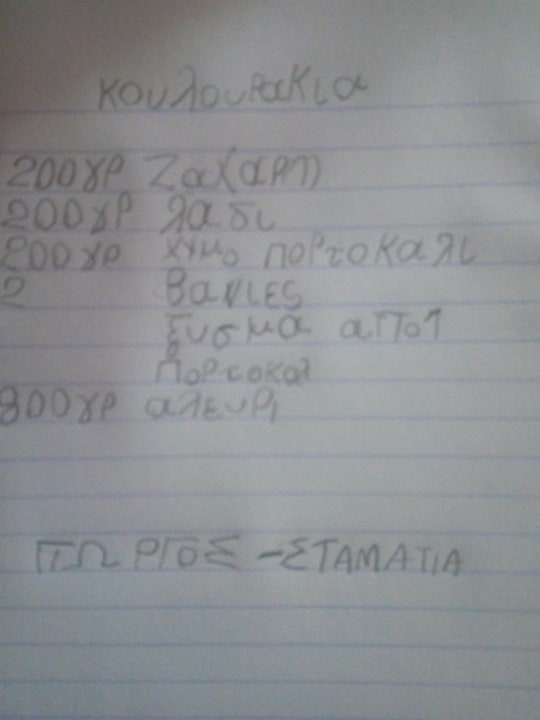 κουλουρακια
200γρ Ζαχαρη
200γρ λαδι
200γρ χυμο πορτοκαλι
2 Βανιες
ξυσμα απο 1
πορτοκαλ
800γρ αλευρι
ΓΙΩΡΓΟΣ - ΣΤΑΜΑΤΙΑ